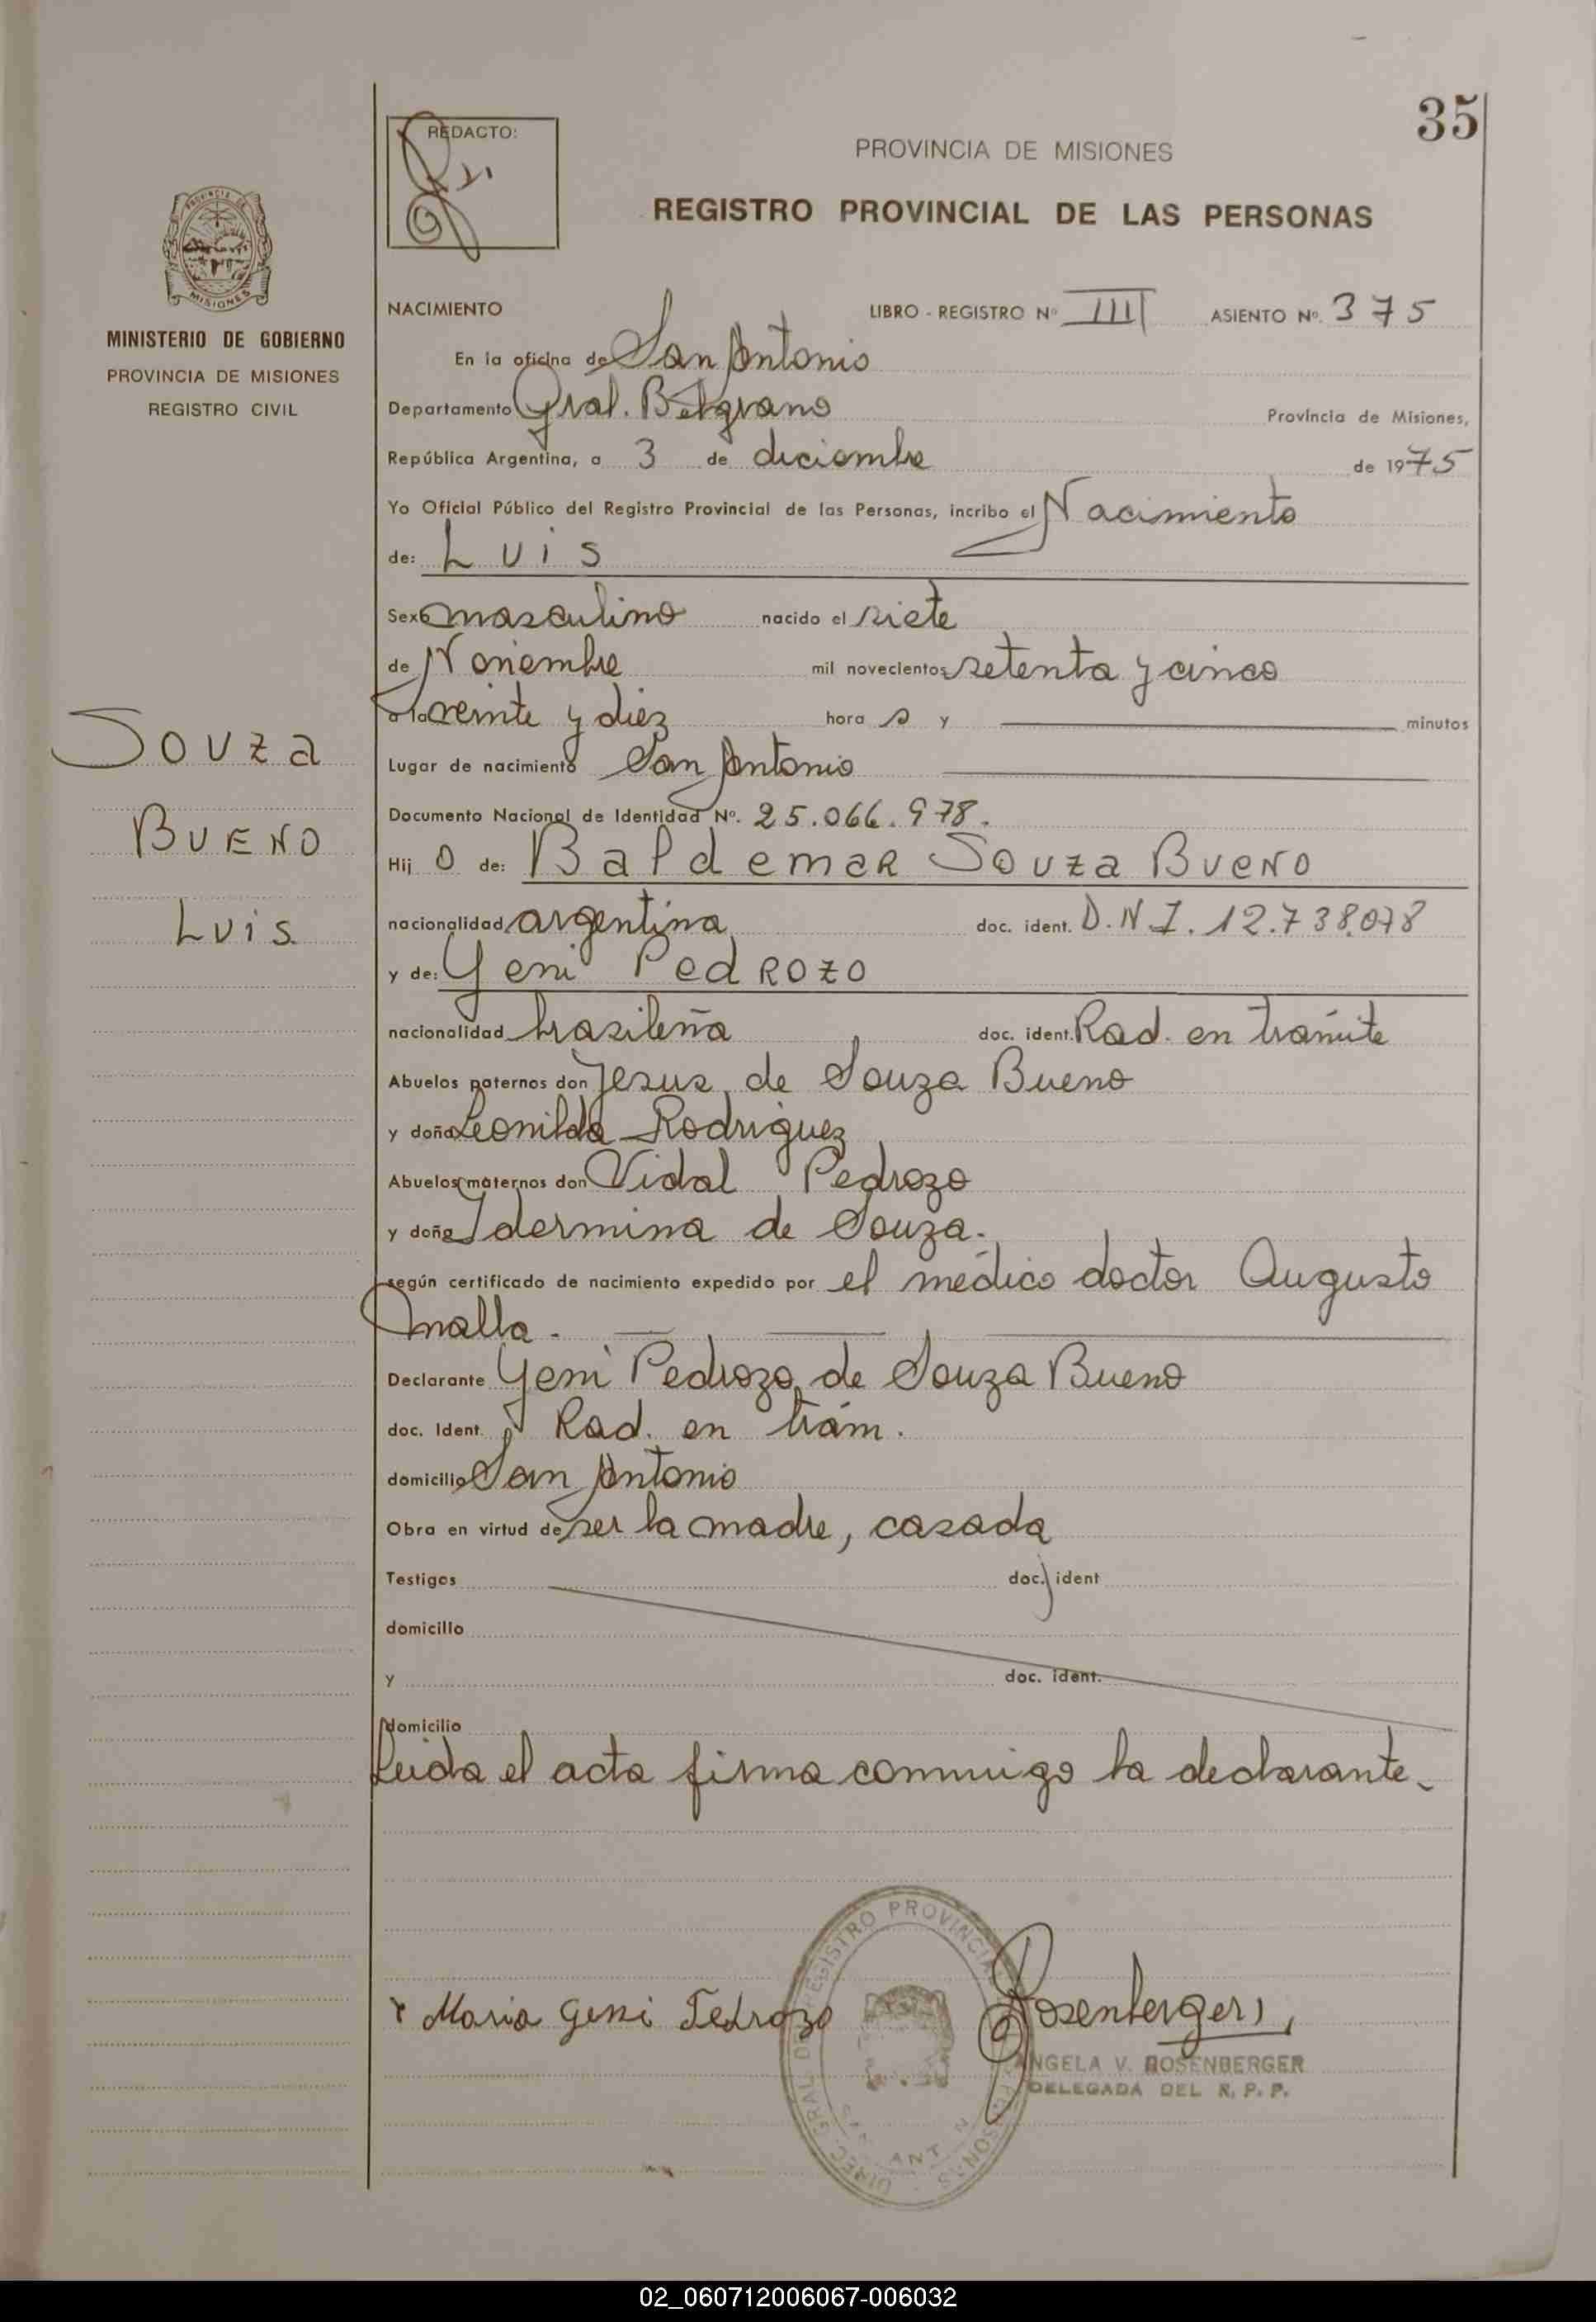 35
REDACTO:
PROVINCIA DE MISIONES
REGISTRO PROVINCIAL DE LAS PERSONAS
MISIONES
MINISTERIO DE GOBIERNO
PROVINCIA DE MISIONES
REGISTRO CIVIL
NACIMIENTO LIBRO - REGISTRO Nº III ASIENTO Nº. 375
En la oficina de San Antonio
Departamento Gral. Belgrano Provincia de Misiones,
República Argentina, a 3 de diciembre de 1975
Yo Oficial Público del Registro Provincial de las Personas, incribo el Nacimiento
de: Luis
Sexo masculino nacido el siete
de Noviembre mil novecientos setenta y cinco
a la veinte y diez hora s y minutos
Souza
Bueno
Luis
Lugar de nacimiento San Antonio
Documento Nacional de Identidad Nº. 25.066.978.
Hij o de: Baldemar Souza Bueno
nacionalidad argentina doc. ident. D.N.I. 12.738.078
y de: Yeni Pedrozo
nacionalidad brasileña doc. ident. Rad. en trámite
Abuelos paternos don Jesus de Souza Bueno
y doña Leonilda Rodriguez
Abuelos maternos don Vidal Pedrozo
y doña Idermina de Souza.
según certificado de nacimiento expedido por el médico doctor Augusto
Malla.
Declarante Yeni Pedrozo de Souza Bueno
doc. Ident. Rad. en trám.
domicilio San Antonio
Obra en virtud de ser la madre, casada
Testigos doc. ident
domicilio
y doc. ident.
domicilio
Leida el acta firma conmigo la declarante.
DIREC. GRAL DEL REGISTRO PROVINCIAL PERSONAS
Maria Geni Pedrozo
Rosenberger
ANGELA V. ROSENBERGER
DELEGADA DEL R. P. P.
02_060712006067-006032